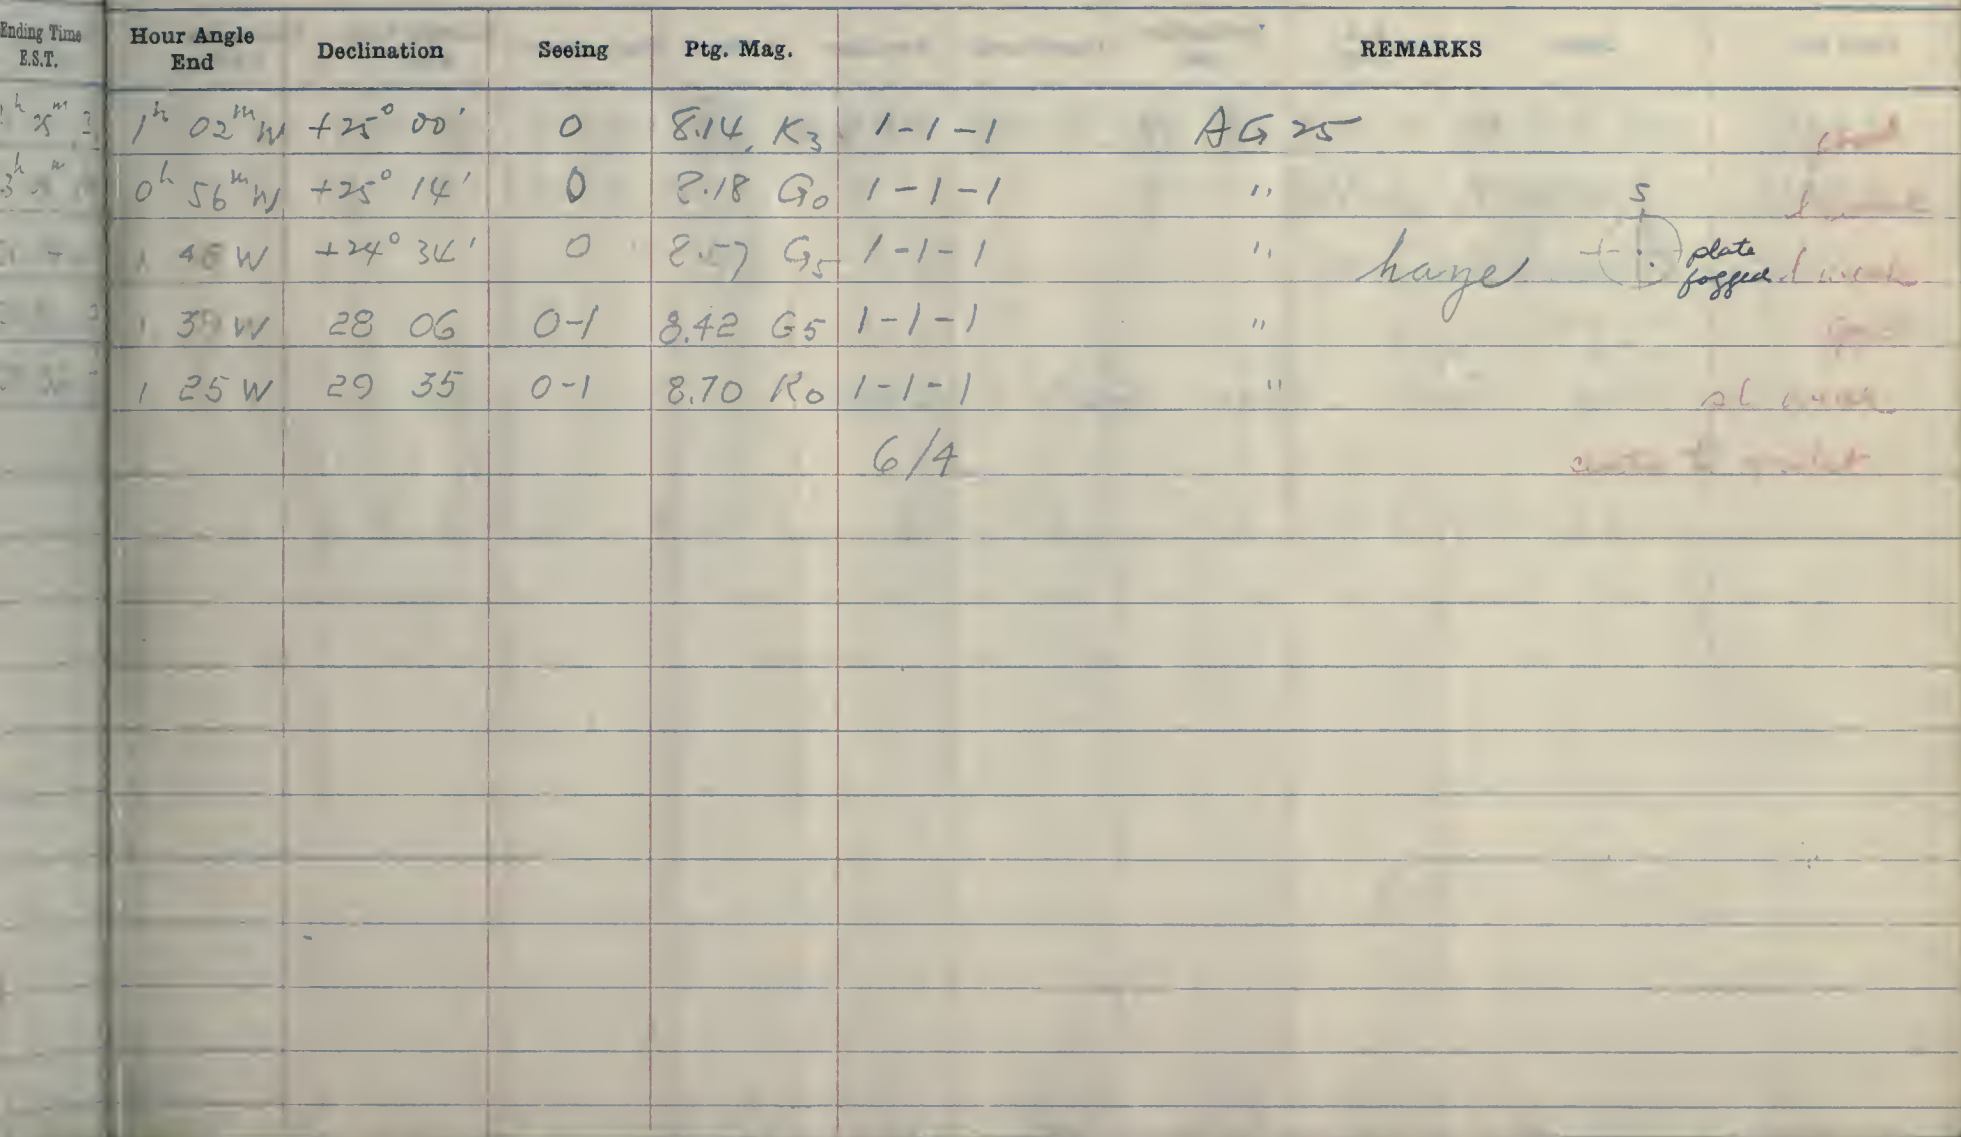 Ending Time E.S.T. Hour Angle End Declination Seeing Ptg. Mag. REMARKS
1h 02m W +25° 00' 0 8.14, K3 1-1-1 AG 25
0h 56m W +25° 14' 0 8.18 G0 1-1-1 "
1 46 W +24° 34' 0 8.57 G5 1-1-1 " haze S plate fogged
1 W 28 06 0-1 8.42 G5 1-1-1 "
1 25 W 29 35 0-1 8.70 K0 1-1-1 "
6/4